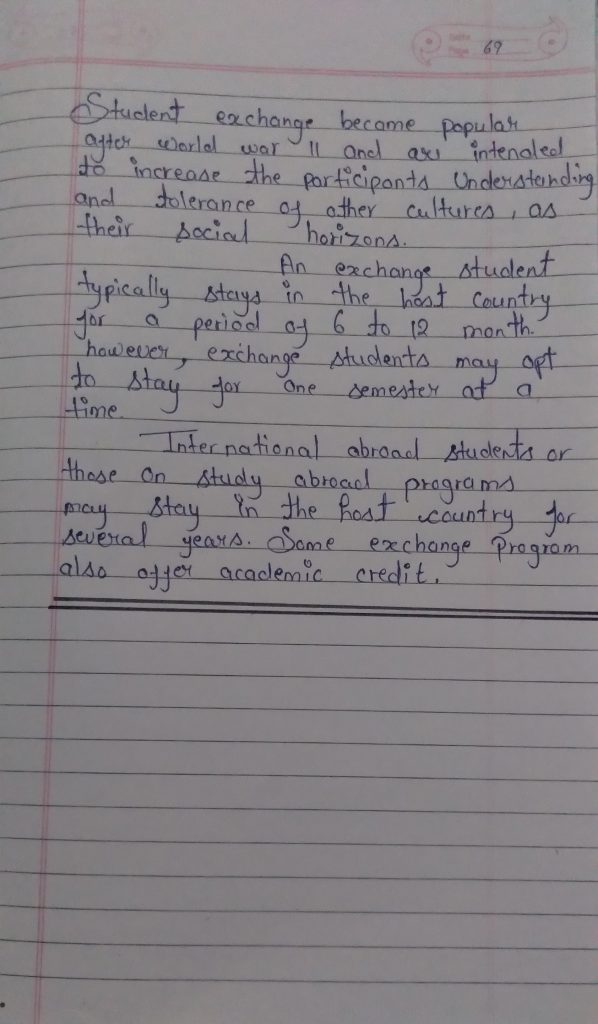 69
Student exchange became popular
after world war II and are intended
to increase the participants Understanding
and tolerance of other cultures, as
their social horizons.
An exchange student
typically stays in the host country
for a period of 6 to 12 month.
however, exchange students may opt
to stay for one semester at a
time.
International abroad students or
those on study abroad programs
may stay in the host country for
several years. Some exchange program
also offer academic credit.